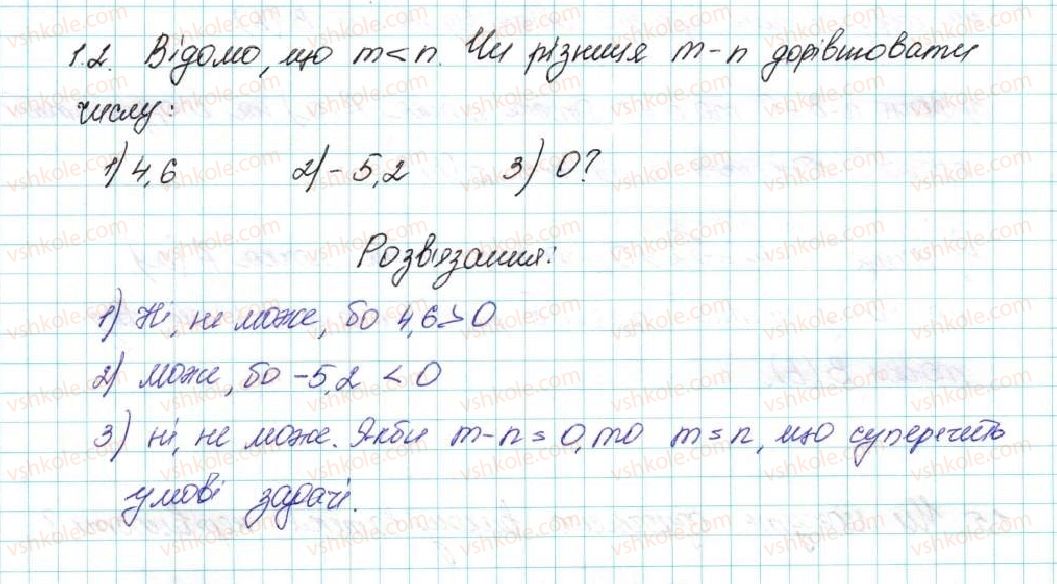 1.2. Відомо, що m < n. Чи різниця m - n дорівнювати
числу:
1) 4,6 2) - 5,2 3) 0?
Розв'язання:
1) Ні, не може, бо 4,6 > 0
2) може, бо -5,2 < 0
3) ні, не може. Якби m - n = 0, то m = n, що суперечить
умові задачі.